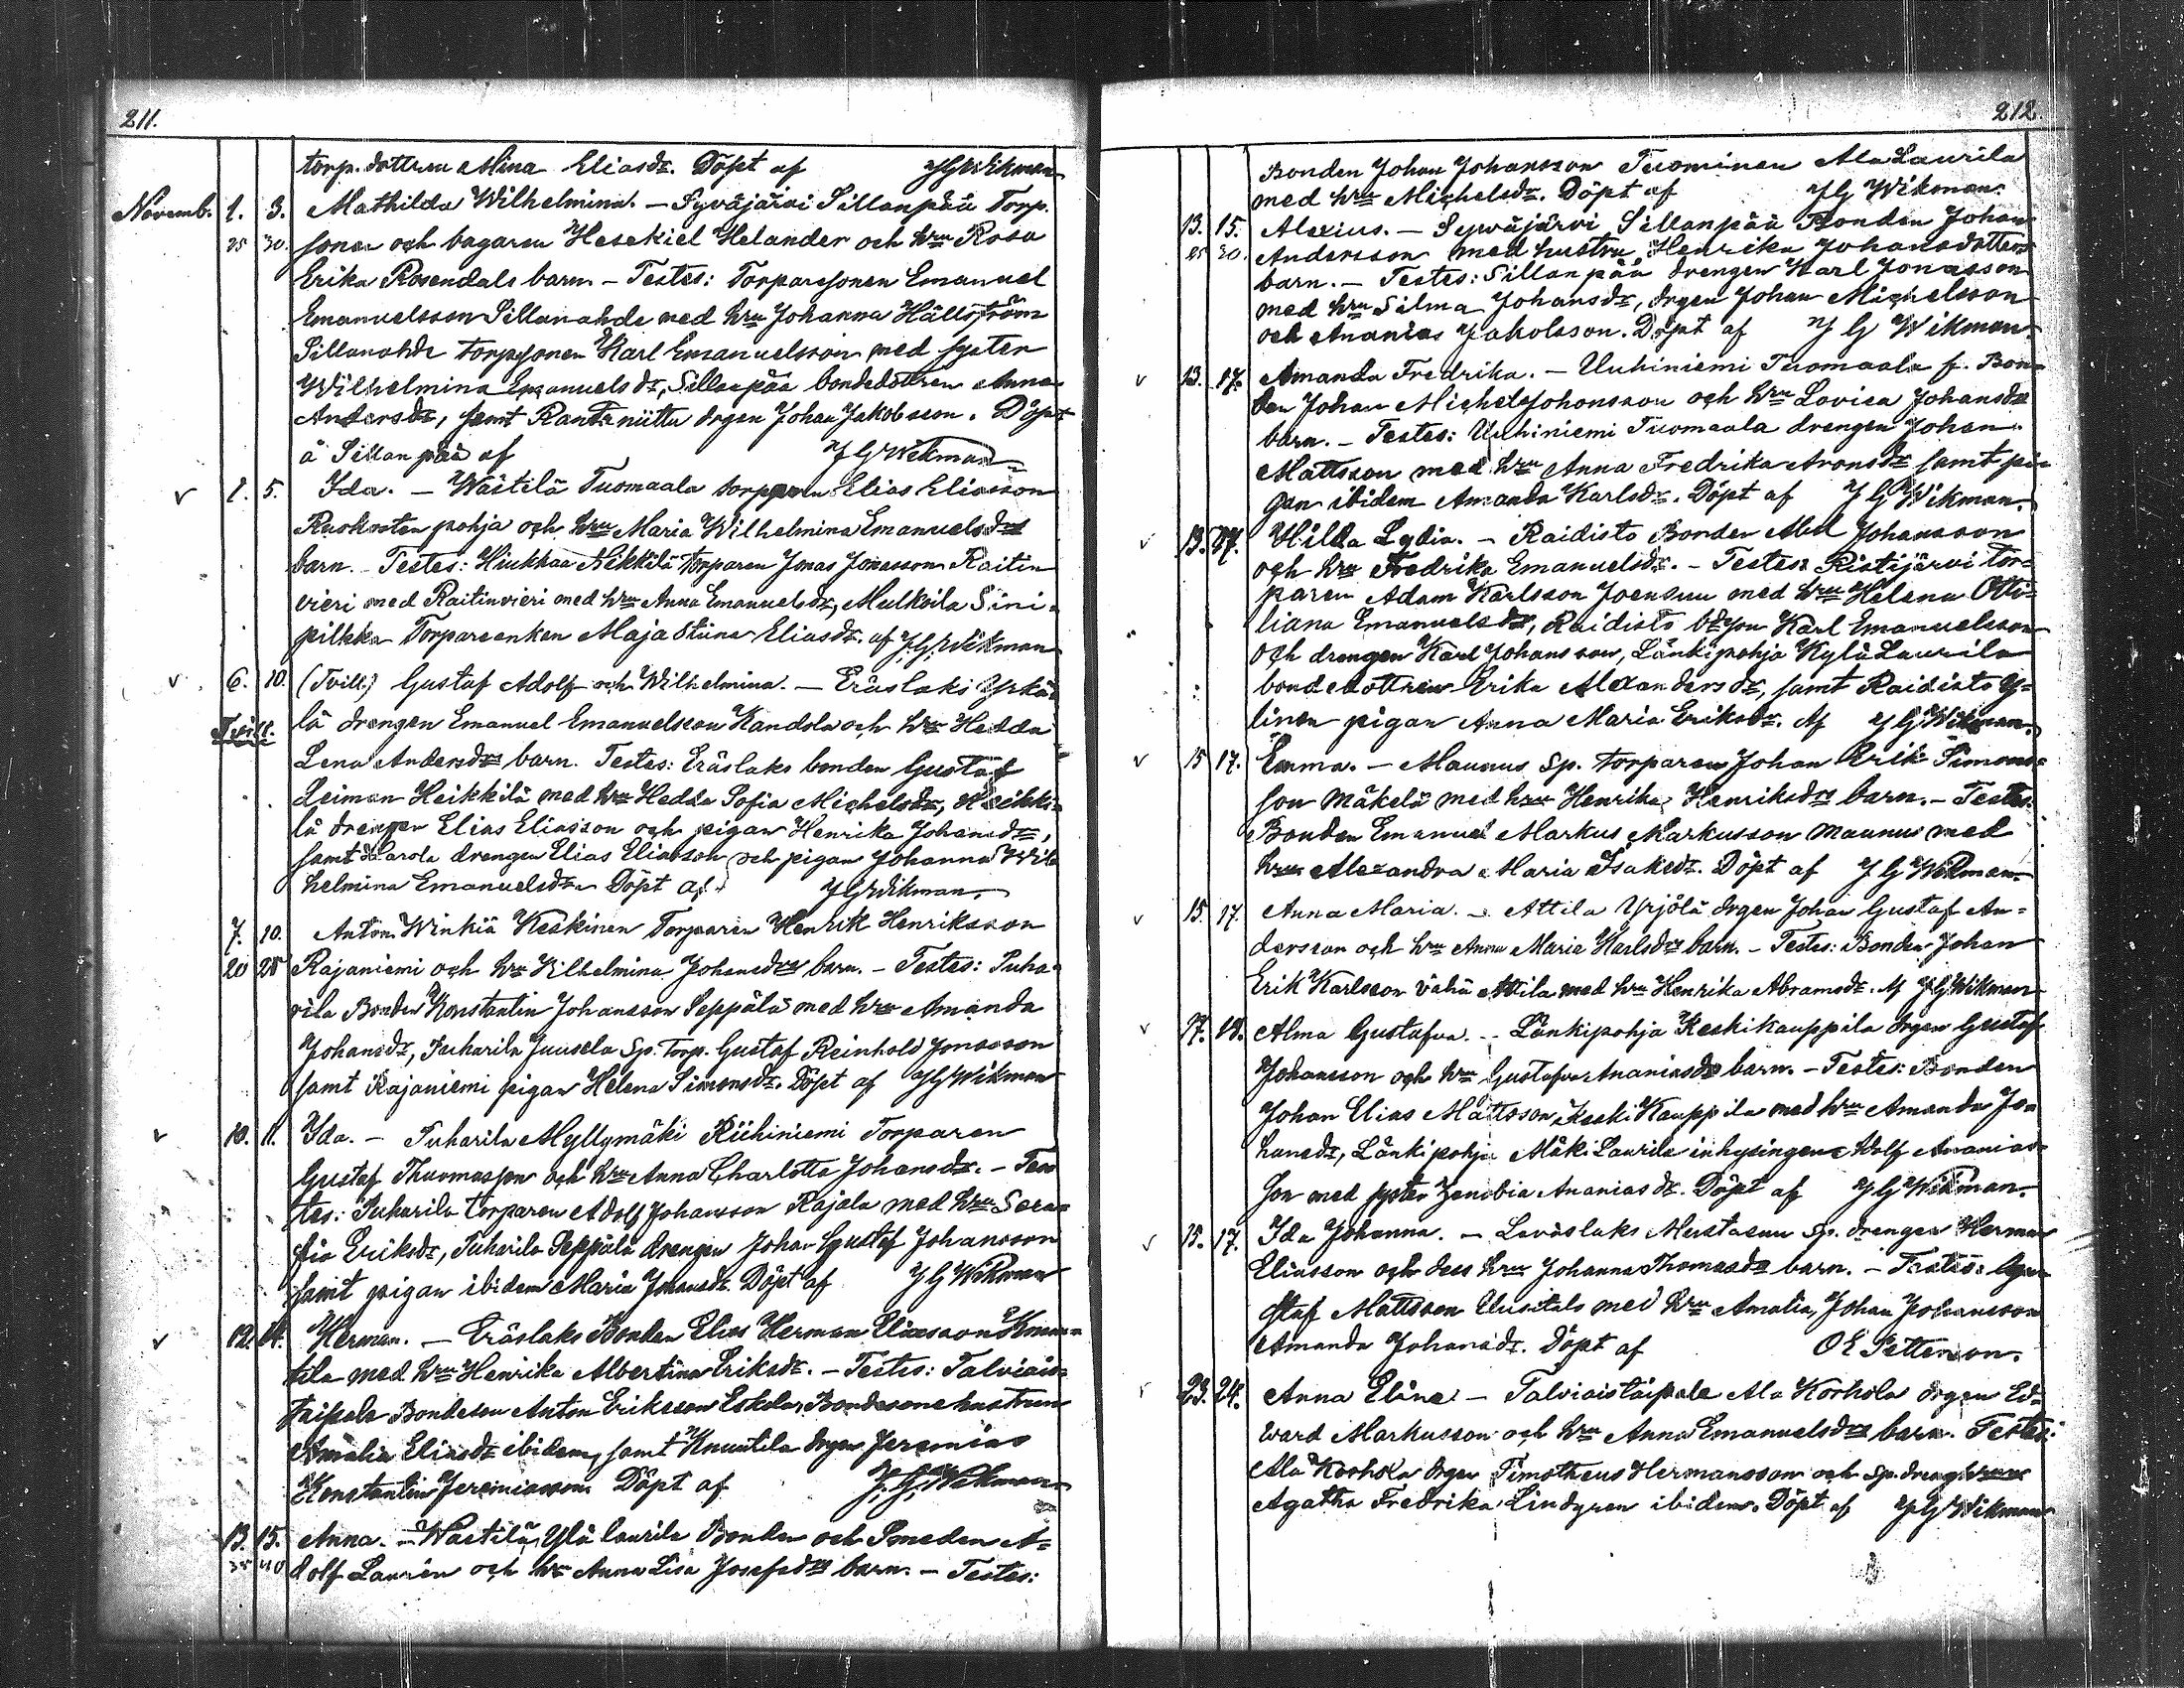 211.
torp. dottren Mina Eliasdr. Döpt af JGWikman
Novemb. 1. 3. Mathilda Wilhelmina. — Syväjärvi Sillanpää Torp.
25 30. sonen och bagaren Hesekiel Helander och hru Rosa
Erika Rosendals barn. — Testes: Torparesonen Emanuel
Emanuelsson Sillanahde med hru Johanna Hällström
Sillanahde torpsonen Karl Emanuelsson med syster
Wilhelmina Emanuelsdr, Sillanpää bondedottren Anna
Andersdr, samt Rantaniittu drgen Johan Jakobsson. Döpt
å Sillanpää af JGWikman
v 1. 5. Ida. — Wästilä Tuomaala torpparen Elias Eliasson
Ruokosten pohja och hru Maria Wilhelmina Emanuelsdrs
barn. — Testes: Hiukkaa Nikkilä Torparen Jonas Jonasson Raitin
vieri med Raitinvieri med hru Anna Emanuelsdr, Mulkoila Sini-
pilkka Torpareenken Maja Stiina Eliasdr. af J.G. Wikman
v 6. 10. (Tvill.) Gustaf Adolf och Wilhelmina. — Eräslaks Yrkä-
Tvill. lä drengen Emanuel Emanuelsson Kandola och hru Hedda
Lena Andersdrs barn. Testes: Eräslaks bonden Gustaf
Leiman Heikkilä med hru Hedda Sofia Michelsdr, Heikki-
lä drengen Elias Eliasson och pigan Henrika Johansdr,
samt drengen Elias Eliasson och pigan Johanna Wil-
helmina Emanuelsdr. Döpt af JGWikman.
7. 10. Anton. Winkiä Keskinen Torparen Henrik Henriksson
20 28 Rajaniemi och hru Wilhelmina Johansdrs barn. — Testes: Juha-
rila Bonden Konstantin Johansson Seppälä med hru Amanda
Johansdr, Juharila Juusela Sp. Torp. Gustaf Reinhold Jonasson
samt Rajaniemi pigan Helena Simonsdr. Döpt af JGWikman
v 10. 11. Ida. — Juharila Myllymäki Riihiniemi Torparen
Gustaf Thuomasson och hru Anna Charlotta Johansdr. — Tes-
tes: Juharila torparen Adolf Johansson Rajala med hru Sera-
fia Eriksdr, Juharila Seppälä drengen Johan Gustaf Johansson
samt pigan ibidem Maria Johansdr. Döpt af JG Wikman
v 12. 14. Herman. — Eräslaks Bonden Elias Herman Eliasson Knuu-
tila med hru Henrika Albertina Eriksdr. — Testes: Talviais-
taipale Bondeson Anton Eriksson Eskola, Bondesons hustrun
Amalia Eliasdr ibidem, samt Knuutila drgen Jeremias
Konstantin Jeremiasson Döpt af J.G. Wikman
13. 15. Anna. — Wästilä Ylä Laurila Bonden och Smeden A-
35 40 dolf Laurén och hru Anna Lisa Josefsdrs barn. — Testes:
212.
Bonden Johan Johansson Tuominen Ala Laurila
med hru Michelsdr. Döpt af JG Wikman.
13. 15. Alexius. — Sywäjärvi Sillanpää Bonden Johan
25 30. Andersson med hustru Henrika Johansdotters
barn. — Testes: Sillanpää drengen Karl Jonasson
med hru Silma Johansdr, drgen Johan Michelsson
och Ananias Jakobsson. Döpt af JG Wikman
v 13. 17. Amanda Fredrika. — Uuhiniemi Tuomaala f. Bon-
den Johan Michel Johansson och hru Lovisa Johansdrs
barn. — Testes: Uuhiniemi Tuomaala drengen Johan
Mattsson med hru Anna Fredrika Aronsdr samt pi-
gan ibidem Amanda Karlsdr. Döpt af JG Wikman.
v 13. 17. Hilda Lydia. — Raidisto Bonden Abel Johansson
och hru Fredrika Emanuelsdr. — Testes: Ristijärvi tor-
paren Adam Karlsson Joensuu med hru Helena Otti-
liana Emanuelsdr, Raidisto bdson Karl Emanuelsson
och drengen Karl Johansson, Länkipohja Kylä Laurila
bondedottren Erika Alexandersdr, samt Raidisto Y-
linen pigan Anna Maria Eriksdr. Af JG Wikman.
v 15 17. Emma. — Maunus Sp. torparen Johan Erik Simons-
son Mäkelä med hru Henrika Henriksdrs barn. — Testes:
Bonden Emanuel Markus Markusson Maunus med
hru Alexandra Maria Isaksdr. Döpt af JG Wikman
v 15. 17. Anna Maria. — Attila Yrjölä drgen Johan Gustaf An-
dersson och hru Anna Maria Karlsdrs barn. — Testes: Bonden Johan
Erik Karlsson Vähä Attila med hru Henrika Abramsdr. Af JGWikman
v 17. 18. Alma Gustafva. — Länkipohja Keskikauppila drgen Gustaf
Johansson och hru Gustafva Ananiasdrs barn. — Testes: Bonden
Johan Elias Mattsson Keski Kauppila med hru Amanda Jo-
hansdr, Länkipohja Mäki Laurila inhysingen Adolf Ananias-
son med syster Zenobia Ananiasdr. Döpt af JG Wikman.
v 15. 17. Ida Johanna. — Laväslaks Mustasuu Sp. drengen Herman
Eliasson och dess hru Johanna Thomasdrs barn. — Testes: Gu-
staf Mattsson Uusitalo med hru Amalia, Johan Johansson
Amanda Johansdr. Döpt af OE Petterson.
23. 24. Anna Elina — Talviaistaipale Ala Korhola drgen Ed-
ward Markusson och hru Anna Emanuelsdrs barn. Testes:
Ala Korhola drgen Timotheus Hermansson och Sp. drenghrun
Agatha Fredrika Lindgren ibidem. Döpt af JG Wikman